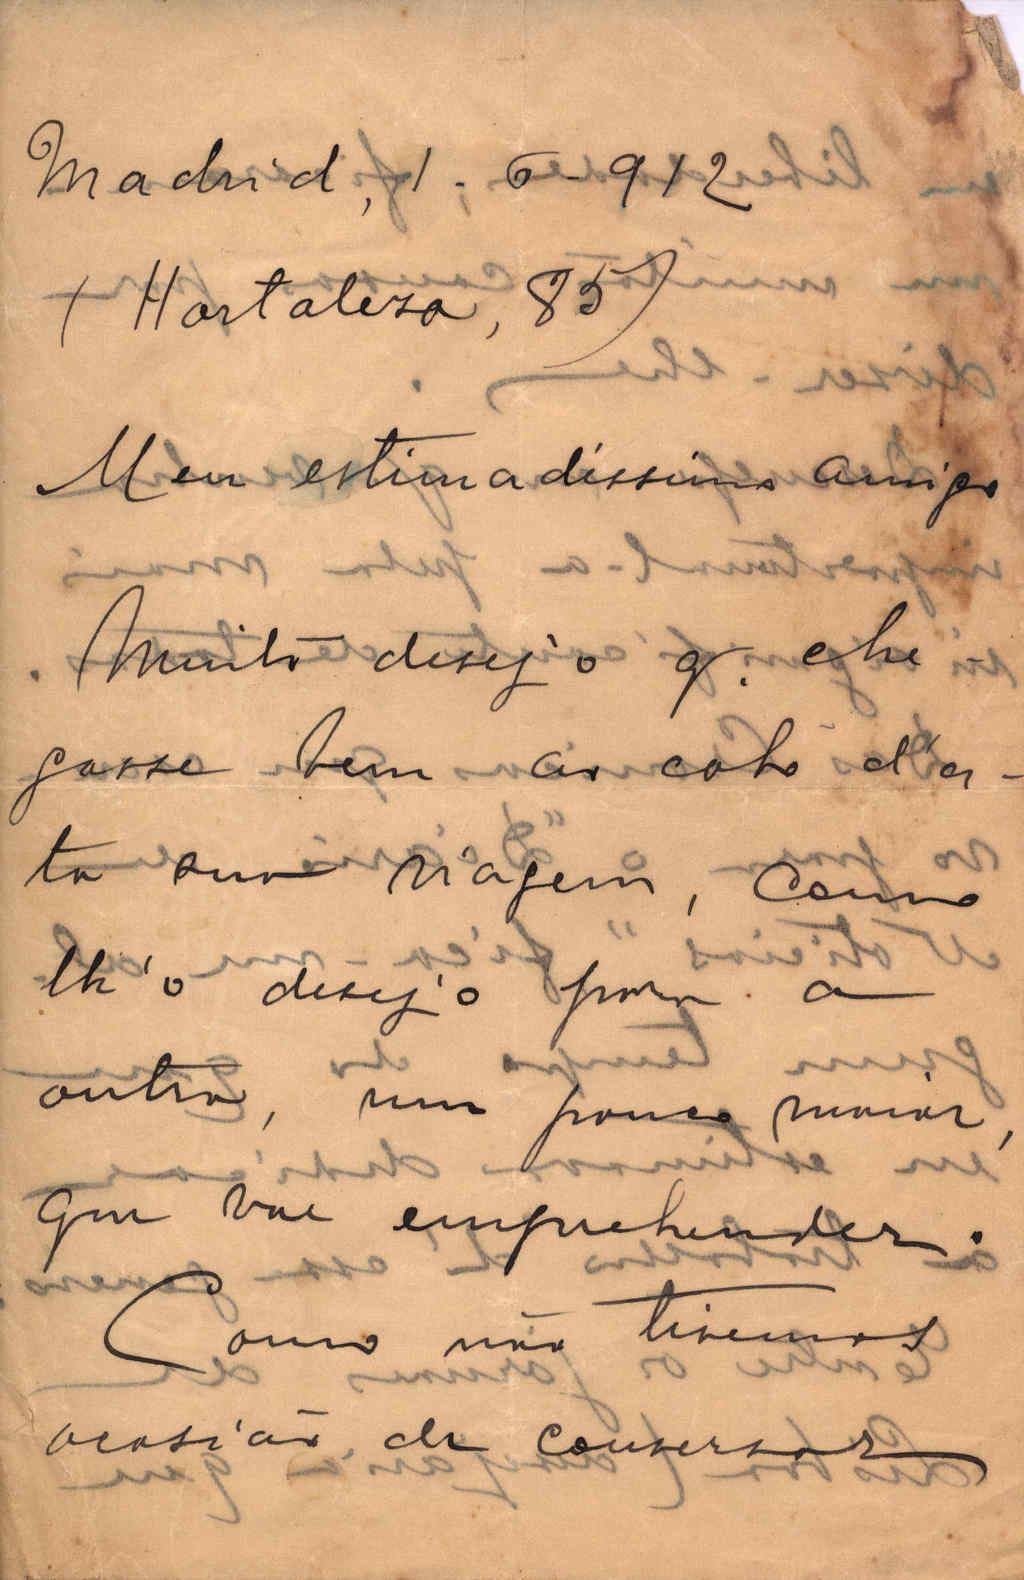 Madrid, 1-6-912
(Hortaleza, 85)
Meu estimadissimo amigo
Muito desejo q. che
gasse bem ao cabo d'a-
ta sua viagem, como
lh'o desejo para a
outra, um pouco maior,
que vae emprehender.
Como não tivemos
ocasião de conversar